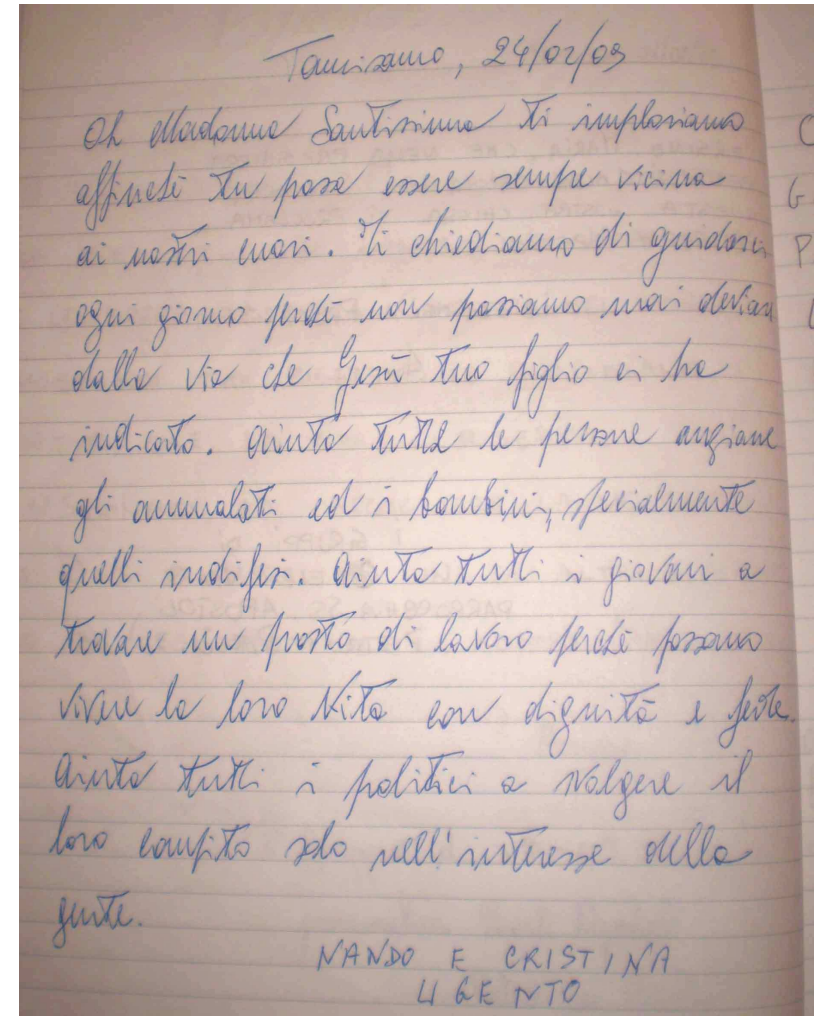 Taurisano, 24/02/09
Oh Madonna Santissima ti imploriamo
affinché tu possa essere sempre vicina
ai nostri cuori. Ti chiediamo di guidarci
ogni giorno perché non possiamo mai deviare
dalla via che Gesù tuo figlio ci ha
indicato. Aiuta tutte le persone anziane
gli ammalati ed i bambini, specialmente
quelli indifesi. Aiuta tutti i giovani a
trovare un posto di lavoro perché possano
vivere la loro vita con dignità e fede.
Aiuta tutti i politici a svolgere il
loro compito solo nell'interesse della
gente.
NANDO E CRISTINA
UGENTO